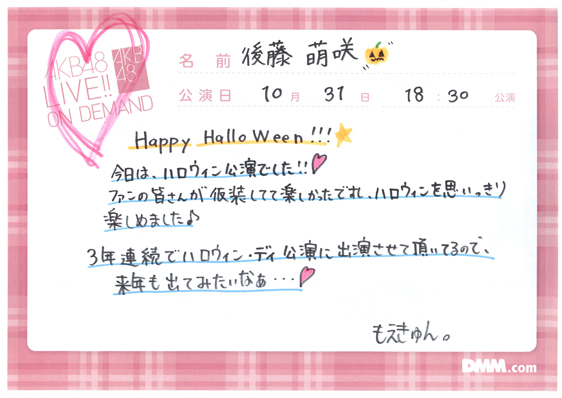 AKB48
LIVE!!
ON DEMAND
AKB
48
名前 後藤 萌咲
公演日 10月 31日 18:30 公演
Happy Halloween!!!
今日は、ハロウィン公演でした!!
ファンの皆さんが仮装してて楽しかったですし、ハロウィンを思いっきり
楽しめました♪
3年連続でハロウィン・ディ公演に出演させて頂いてるので、
来年も出てみたいなぁ・・・
もえきゅん。
DMM.com